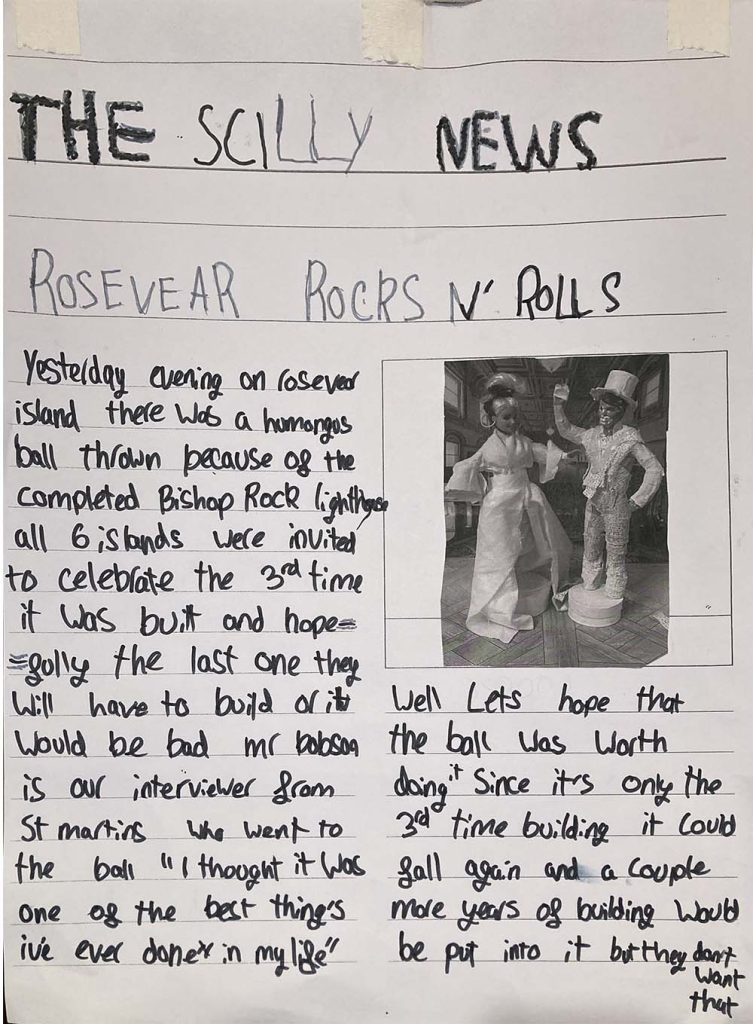 THE SCILLY NEWS
ROSEVEAR ROCKS N' ROLLS
Yesterday evening on rosevear
island there was a humongus
ball thrown because of the
completed Bishop Rock lighthouse
all 6 islands were invited
to celebrate the 3rd time
it was built and hope=
=fully the last one they
will have to build or it
would be bad mr bobson
is our interviewer from
St martins who went to
the ball "I thought it was
one of the best thing's
iv'e ever done in my life"
Well Lets hope that
the ball was worth
doing it Since it's only the
3rd time building it could
fall again and a couple
more years of building would
be put into it but they don't
want
that